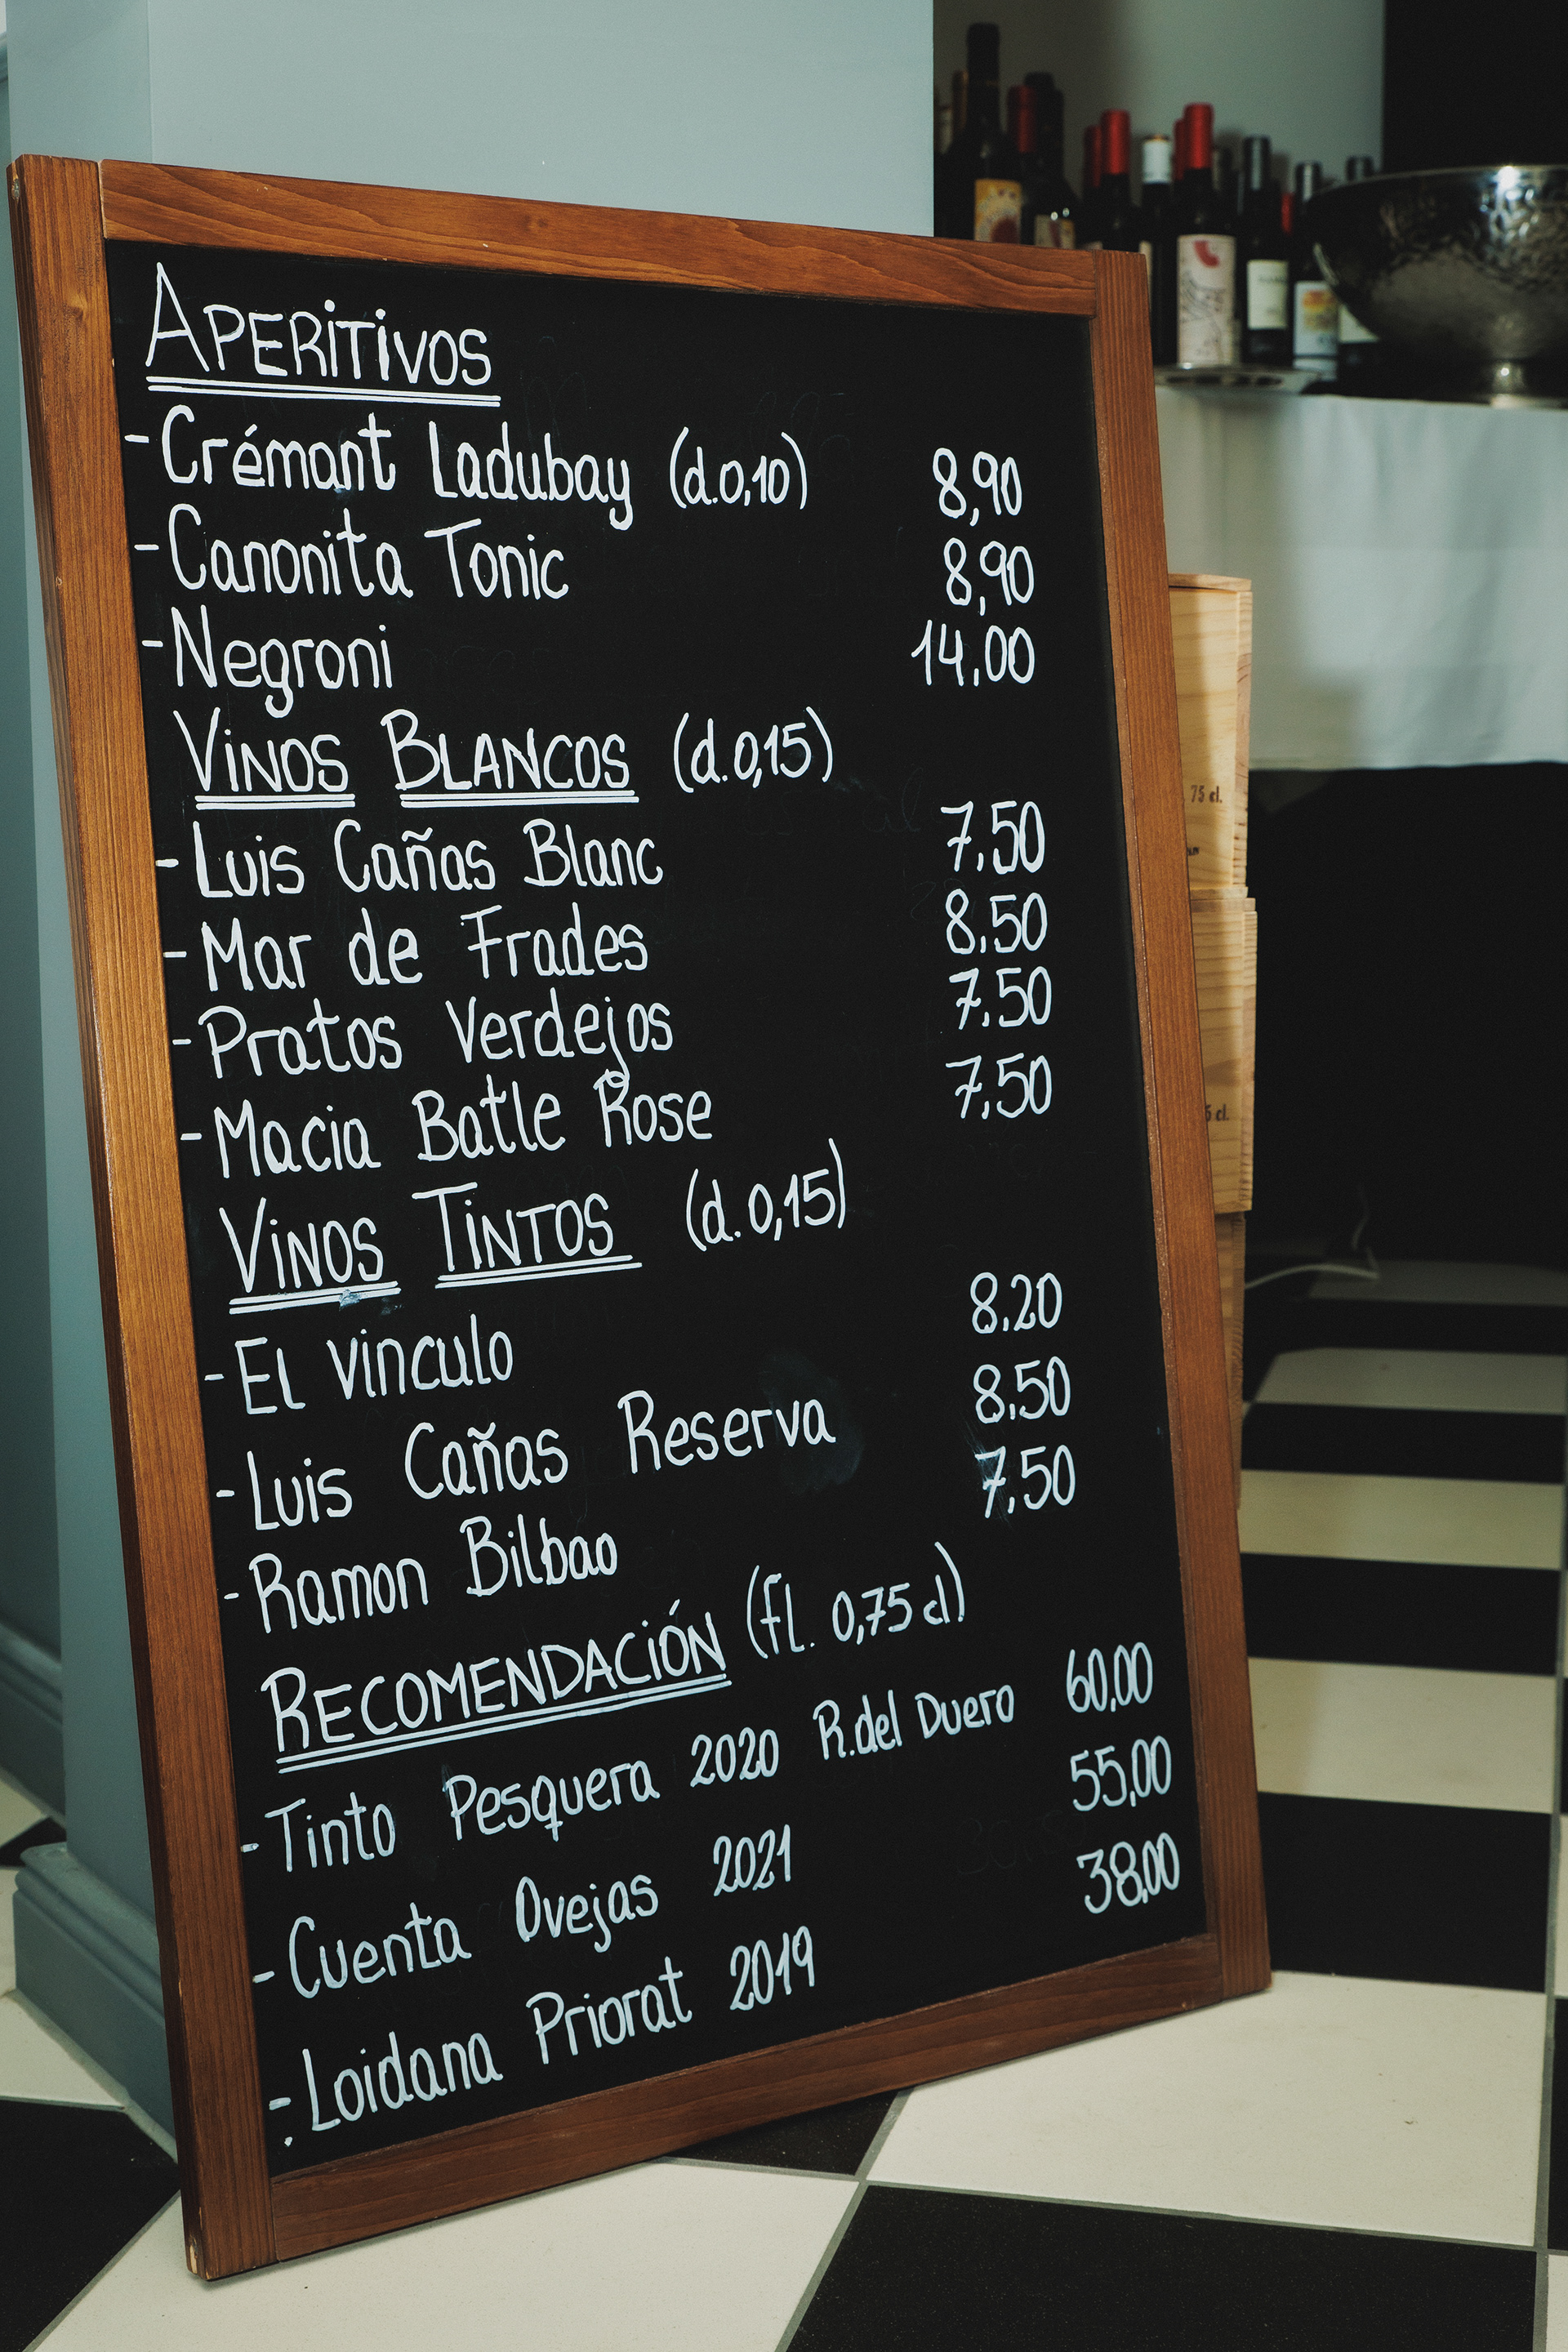 APERITIVOS
-Crémant Ladubay (d.0,10) 8,90
-Canonita Tonic 8,90
-Negroni 14.00
VINOS BLANCOS (d.0,15)
-Luis Cañas Blanc 7.50
-Mar de Frades 8.50
-Pratos Verdejos 7.50
-Macia Batle Rose 7.50
VINOS TINTOS (d.0,15)
-El vinculo 8.20
-Luis Cañas Reserva 8.50
-Ramon Bilbao 7.50
RECOMENDACIÓN (fl. 0,75 cl)
-Tinto Pesquera 2020 R.del Duero 60,00
-Cuenta Ovejas 2021 55,00
-Loidana Priorat 2019 38,00
75 cl.
cl.